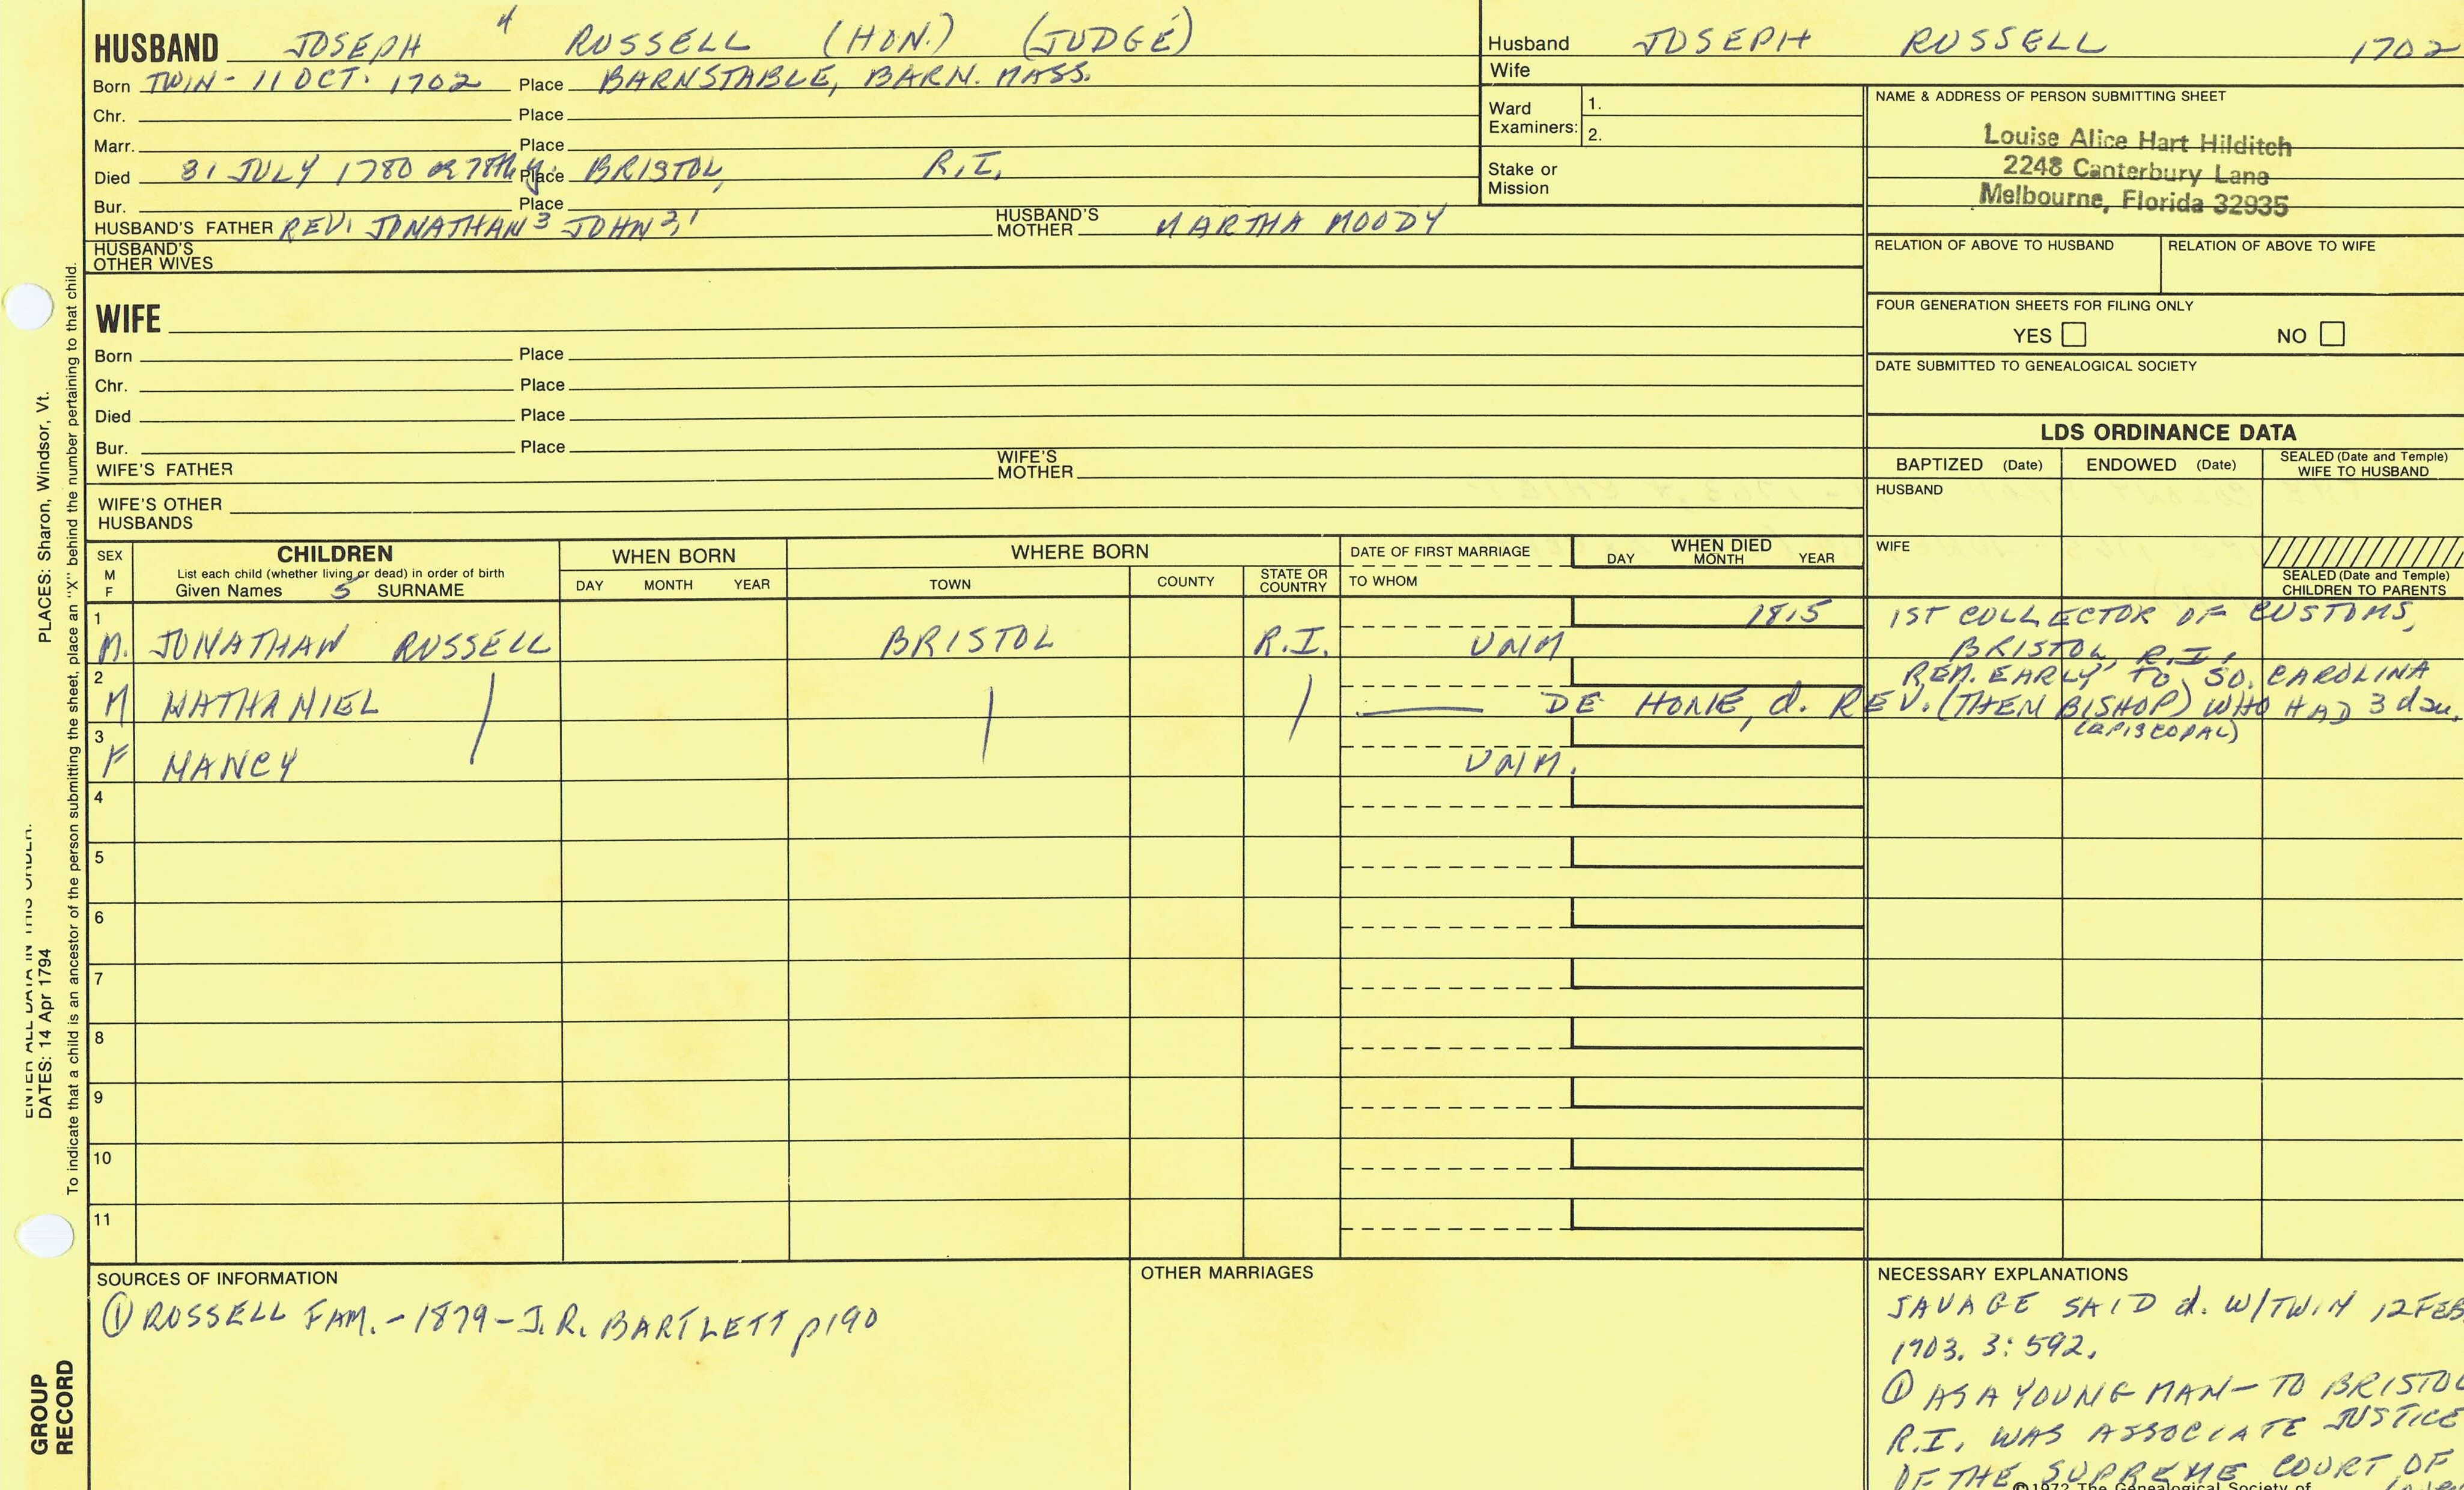 HUSBAND JOSEPH 4 RUSSELL (HON.) (JUDGE)
Born TWIN - 11 OCT. 1702 Place BARNSTABLE, BARN. MASS.
Chr. Place
Marr. Place
Died 31 JULY 1780 or 78th y. Place BRISTOL, R.I.
Bur. Place
HUSBAND'S FATHER REV. JONATHAN 3 JOHN 2,1 HUSBAND'S MOTHER MARTHA MOODY
HUSBAND'S OTHER WIVES
Husband JOSEPH RUSSELL 1702
Wife
Ward Examiners: 1.
2.
Stake or Mission
NAME & ADDRESS OF PERSON SUBMITTING SHEET
Louise Alice Hart Hilditch
2248 Canterbury Lane
Melbourne, Florida 32935
RELATION OF ABOVE TO HUSBAND RELATION OF ABOVE TO WIFE
FOUR GENERATION SHEETS FOR FILING ONLY
YES NO
DATE SUBMITTED TO GENEALOGICAL SOCIETY
WIFE
Born Place
Chr. Place
Died Place
Bur. Place
WIFE'S FATHER WIFE'S MOTHER
WIFE'S OTHER HUSBANDS
LDS ORDINANCE DATA
BAPTIZED (Date) ENDOWED (Date) SEALED (Date and Temple) WIFE TO HUSBAND
HUSBAND
WIFE
SEALED (Date and Temple) CHILDREN TO PARENTS
SEX M F
CHILDREN
List each child (whether living or dead) in order of birth
Given Names 5 SURNAME
WHEN BORN
DAY MONTH YEAR
WHERE BORN
TOWN COUNTY STATE OR COUNTRY
DATE OF FIRST MARRIAGE
TO WHOM
WHEN DIED
DAY MONTH YEAR
1 M. JONATHAN RUSSELL BRISTOL R.I. UNM 1815 1ST COLLECTOR OF CUSTOMS,
BRISTOL, R.I.,
2 M NATHANIEL DE HONE, d. REV. (THEN BISHOP) WHO HAD 3 dau.
REM. EARLY TO SO. CAROLINA
(EPISCOPAL)
3 F NANCY UNM.
4
5
6
7
8
9
10
11
SOURCES OF INFORMATION
① RUSSELL FAM. - 1879 - J.R. BARTLETT p190
OTHER MARRIAGES
NECESSARY EXPLANATIONS
SAVAGE SAID d. W/TWIN 12 FEB
1703. 3:592.
① AS A YOUNG MAN - TO BRISTOL
R.I. WAS ASSOCIATE JUSTICE
OF THE SUPREME COURT OF
©1972 The Genealogical Society of
PLACES: Sharon, Windsor, Vt.
ENTER ALL DATA IN THIS ORDER:
DATES: 14 Apr 1794
To indicate that a child is an ancestor of the person submitting the sheet, place an "X" behind the number pertaining to that child.
GROUP
RECORD